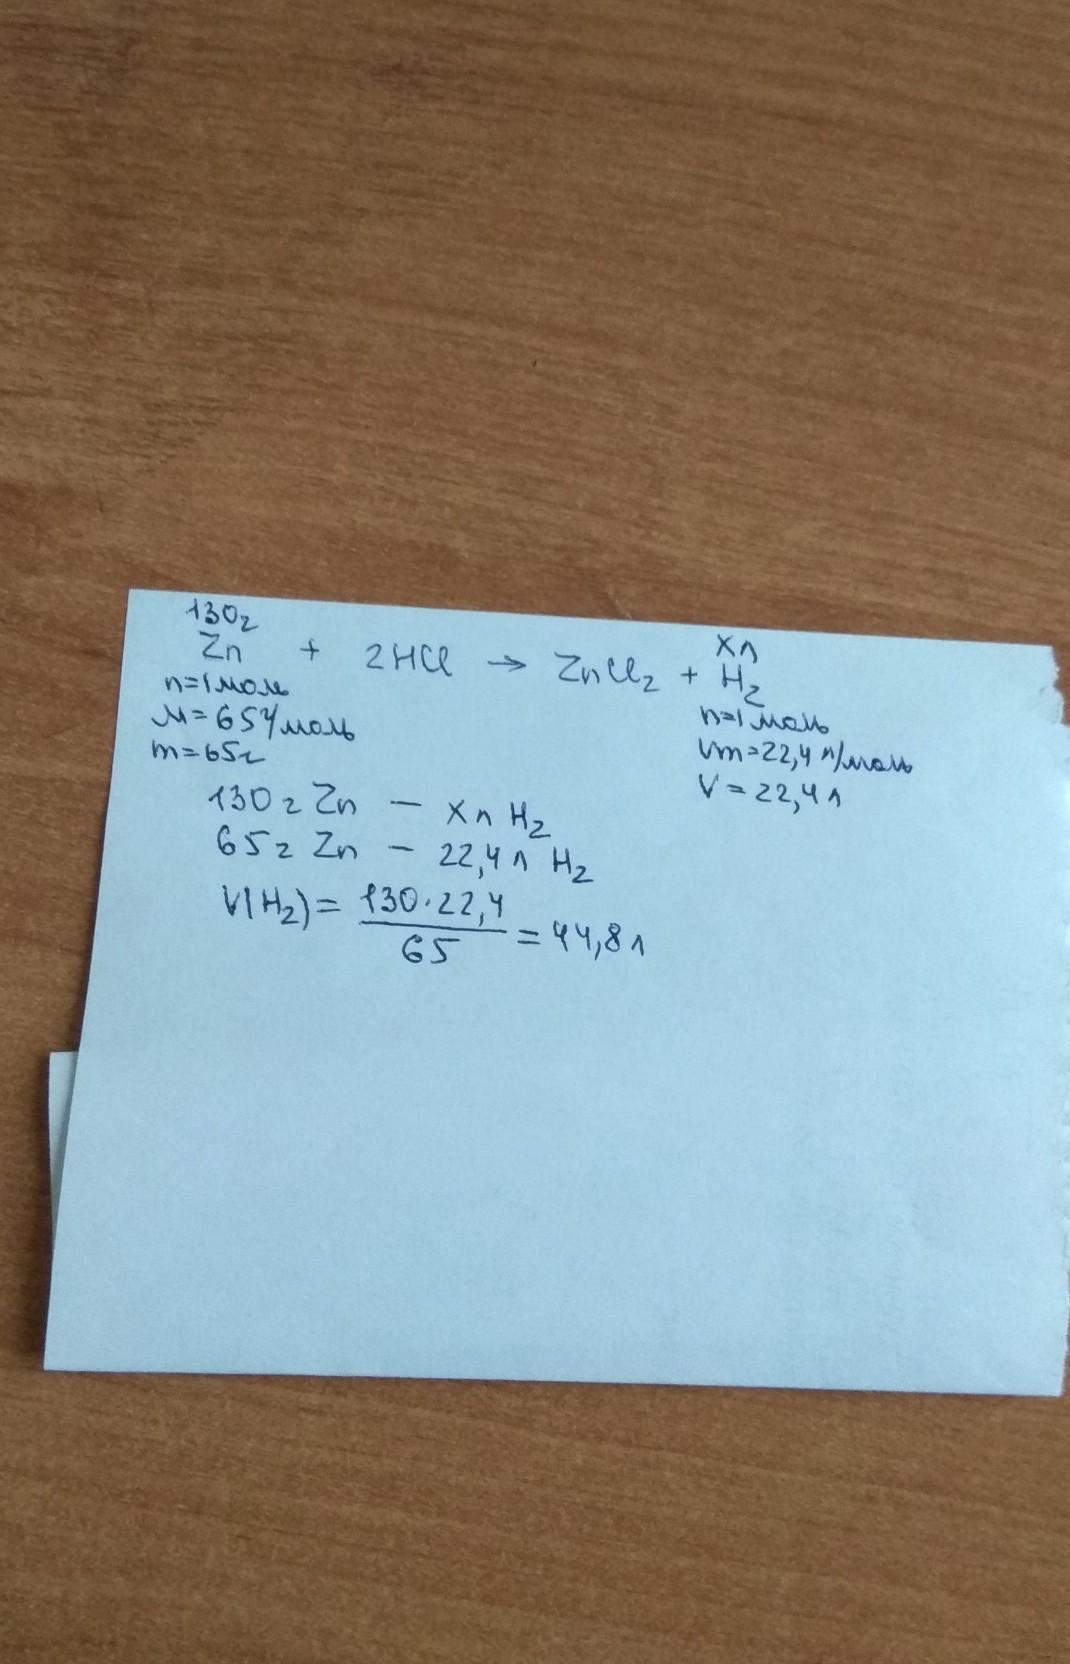 130г хл
Zn + 2HCl → ZnCl₂ + H₂
n=1моль n=1моль
M=65г/моль Vm=22,4 л/моль
m=65г V=22,4л
130г Zn — хл H₂
65г Zn — 22,4л H₂
V(H₂)= 130·22,4 / 65 = 44,8л